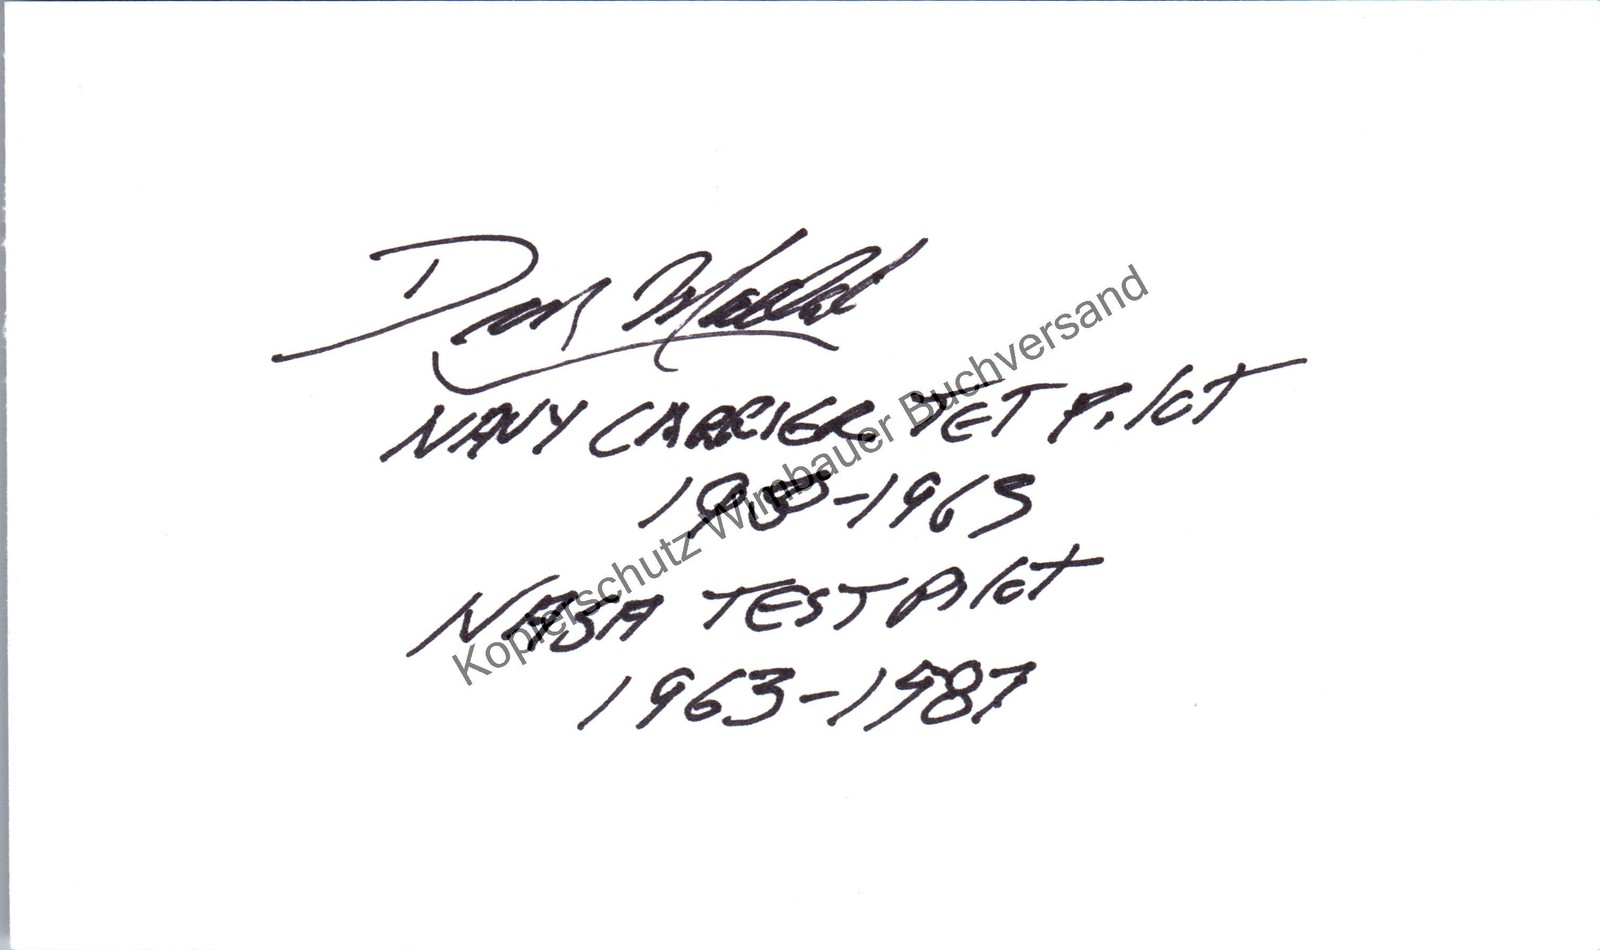 Don Mallick
NAVY CARRIER JET PILOT
1955-1963
NASA TEST PILOT
1963-1987
Kopierschutz Wimbauer Buchversand